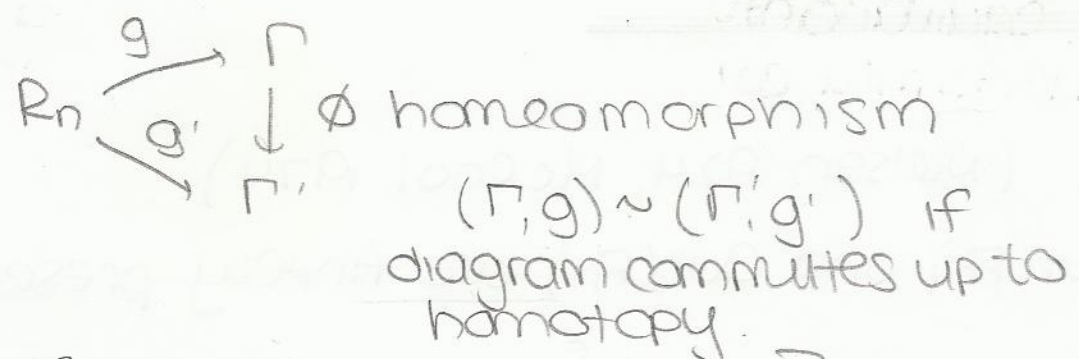 g Γ
Rn ϕ homeomorphism
g'
Γ' (Γ,g)~(Γ',g') if
diagram commutes up to
homotopy.